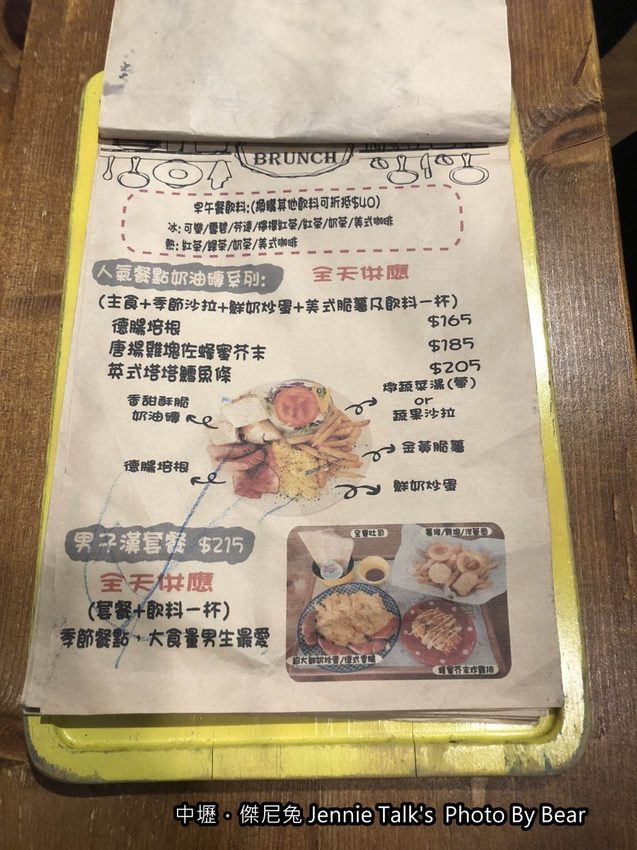 BRUNCH
早午餐飲料:(換購其他飲料可折抵$40)
冰:可樂/雪碧/芬達/檸檬紅茶/紅茶/奶茶/美式咖啡
熱:紅茶/綠茶/奶茶/美式咖啡
人氣餐點奶油磚系列:
全天供應
(主食+季節沙拉+鮮奶炒蛋+美式脆薯及飲料一杯)
德腸培根 $165
唐揚雞塊佐蜂蜜芥末 $185
英式塔塔鱈魚條 $205
香甜酥脆
奶油磚
燉蔬菜湯(葷)
or
蔬果沙拉
金黃脆薯
德腸培根
鮮奶炒蛋
男子漢套餐 $215
全天供應
(套餐+飲料一杯)
季節餐點,大食量男生最愛
全麥吐司
薯條/雞塊/洋蔥圈
超大鮮奶炒蛋/德式香腸
蜂蜜芥末炸雞排
中壢・傑尼兔 Jennie Talk's Photo By Bear